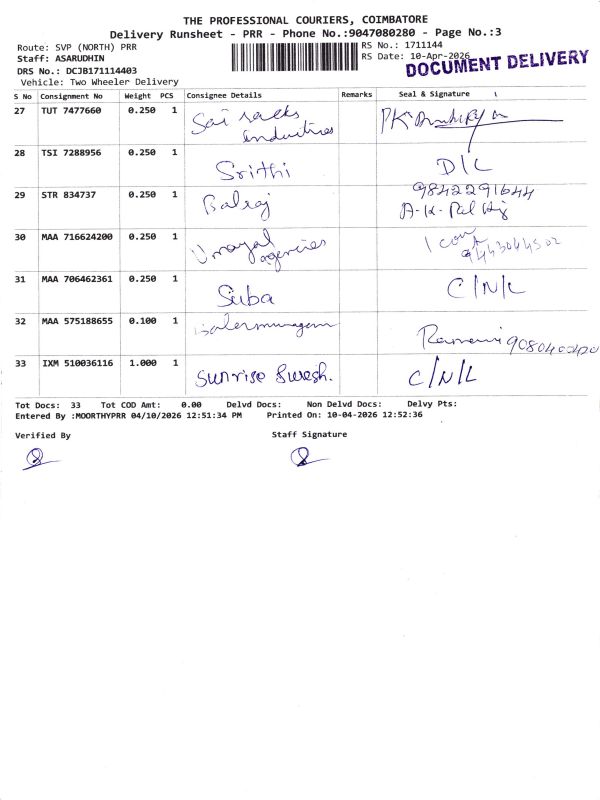 THE PROFESSIONAL COURIERS, COIMBATORE
Delivery Runsheet - PRR - Phone No.:9047080280 - Page No.:3
Route: SVP (NORTH) PRR
RS No.: 1711144
Staff: ASARUDHIN
RS Date: 10-Apr-2026
DOCUMENT DELIVERY
DRS No.: DCJB171114403
Vehicle: Two Wheeler Delivery
S No Consignment No Weight PCS Consignee Details Remarks Seal & Signature
27 TUT 7477660 0.250 1 Sai sacks industries
28 TSI 7288956 0.250 1 Srithi D/L
29 STR 834737 0.250 1 Balraj 9842291644
30 MAA 716624200 0.250 1 Umayal agencies 9443044502
31 MAA 706462361 0.250 1 Suba C/N/L
32 MAA 575188655 0.100 1
33 IXM 510036116 1.000 1 Sunrise Suresh. C/N/L
Tot Docs: 33 Tot COD Amt: 0.00 Delvd Docs: Non Delvd Docs: Delvy Pts:
Entered By :MOORTHYPRR 04/10/2026 12:51:34 PM Printed On: 10-04-2026 12:52:36
Verified By Staff Signature